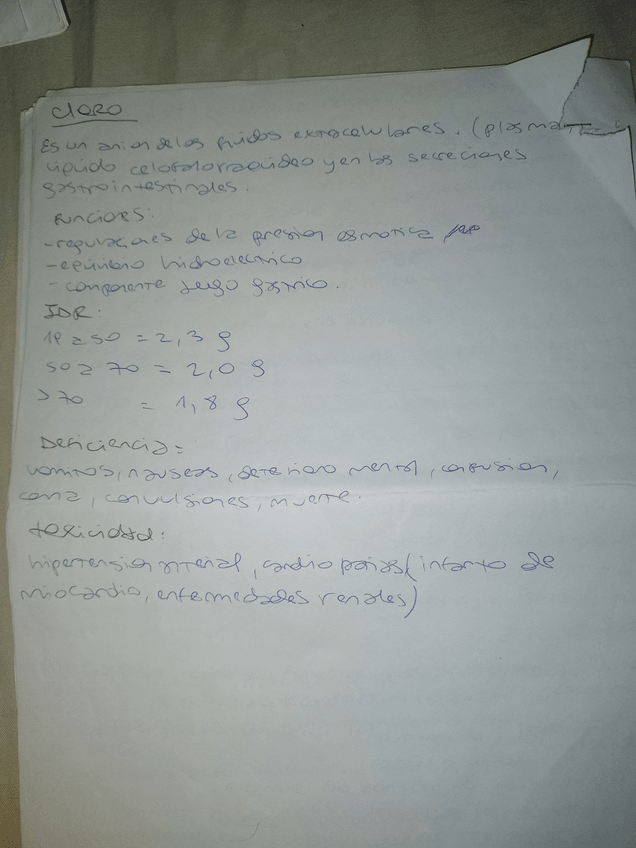 CLORO
Es un anion de los fluidos extracelulares. (plasma
liquido cefalorraquideo y en las secreciones
gastrointestinales.
Funciones:
-regulaciones de la presion osmotica
-equilibrio hidroelectrico
-componente jugo gastrico.
IDR:
19 a 50 = 2,3 g
50 a 70 = 2,0 g
>70 = 1,8 g
Deficiencia=
vomitos, nauseas, deterioro mental, confusion,
coma, convulsiones, muerte.
toxicidad:
hipertension arterial, cardiopatias (infarto de
miocardio, enfermedades renales)